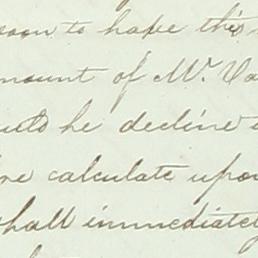 soon to have this
mount of Mr. Va
uld he decline
re calculate upon
shall immediately